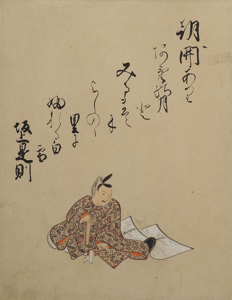 朝開あり
あけの月
と
みるまて
に
よしのゝ
里に
ふれる白
雪
坂上是則